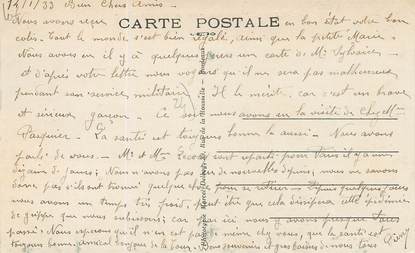 12/1/33 Bien Chers Amis -
CARTE POSTALE
Nous avons reçu en bon état votre bon
colis. Tout le monde s'est bien régalé, ainsi que la petite Marie
Nous avons eu il y a quelques jours un carte de Mr Sylvain
et d'après votre lettre nous voyons qu'il ne sera pas malheureux
pendant son service militaire. Il le mérite car c'est un brave
et sérieux garçon - Ce soir nous avons eu la visite de Chez Mr
Pasquier - La santé est toujours bonne là aussi - Nous avons
parlé de vous - Mr et Mme sont repartis pour Paris il y a une
dizaine de jours; Nous n'avons pas de nouvelles depuis, nous ne savons
donc pas s'ils ont trouvé quelque chose pour se retirer - Depuis quelques jours
nous avons un temps très froid, peut être que cela épidémie
de grippe que nous subissons; car par ici nous y avons presque tous
passé! Nous espérons qu'il n'en est pas de même chez vous, que la santé est
toujours bonne, amical bonjour de la Tour. Bons souvenirs et gros baisers de nous tous